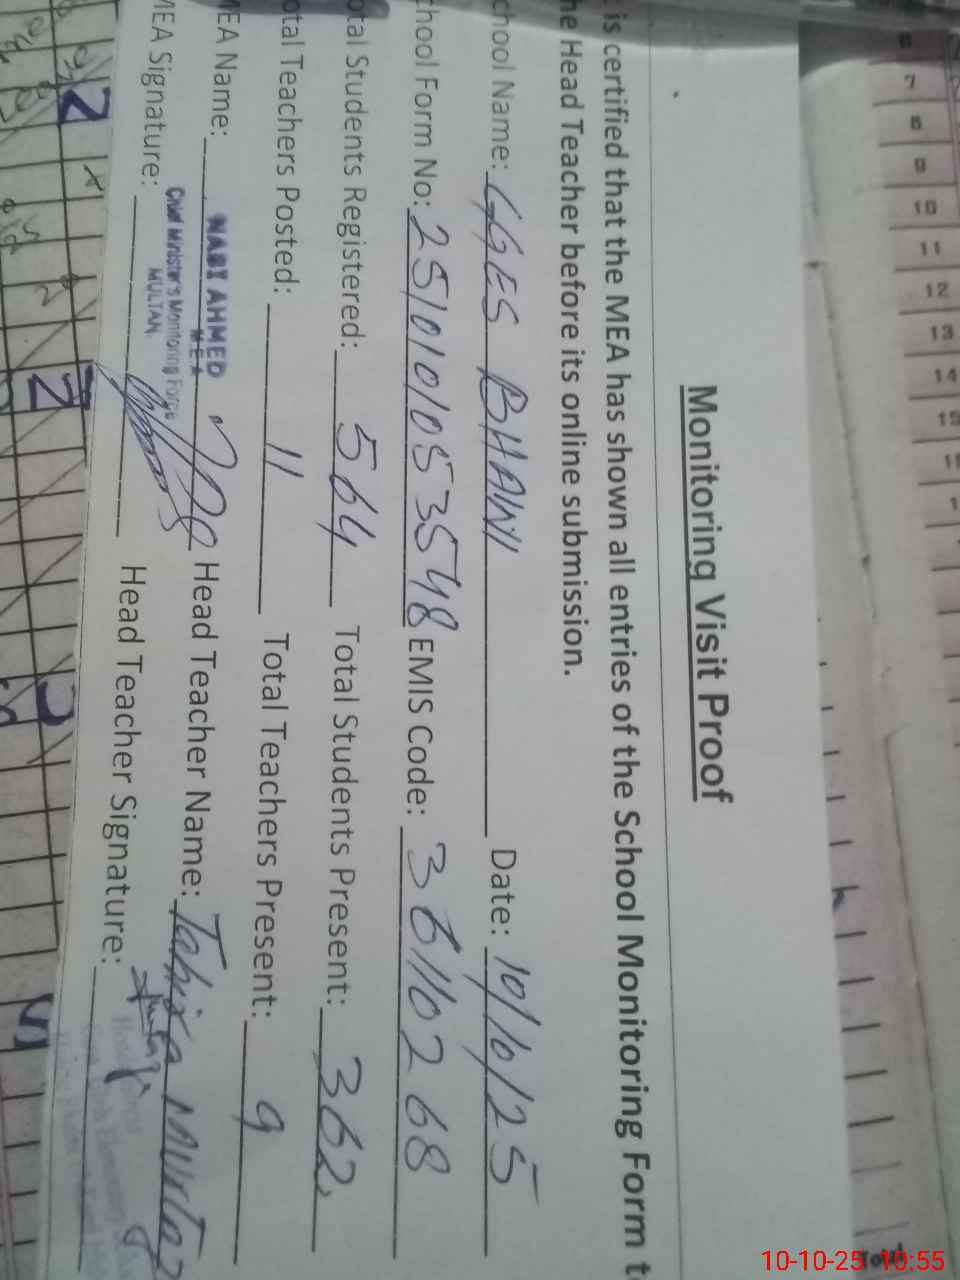 Monitoring Visit Proof
is certified that the MEA has shown all entries of the School Monitoring Form t
he Head Teacher before its online submission.
chool Name: GGES BHAINI Date: 10/10/25
chool Form No: 2510101053548 EMIS Code: 36110268
otal Students Registered: 564 Total Students Present: 362
otal Teachers Posted: 11 Total Teachers Present: 9
MEA Name: NABI AHMED Head Teacher Name: Tahira Murtaz
M.E.A
MEA Signature: Chief Minister's Monitoring Force Head Teacher Signature:
MULTAN.
7
8
9
10
11
12
13
14
15
10-10-25 10:55